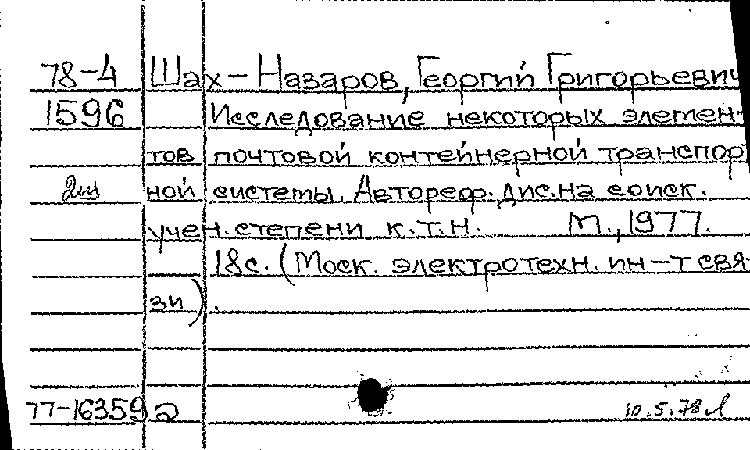 78-4 Шах-Назаров, Георгий Григорьевич
1596 Исследование некоторых элемен-
тов почтовой контейнерной транспор
ной системы. Автореф. дис. на соиск.
учен. степени к.т.н. М., 1977.
18с. (Моск. электротехн. ин-т свя-
зи).
77-16359а 10.5.78